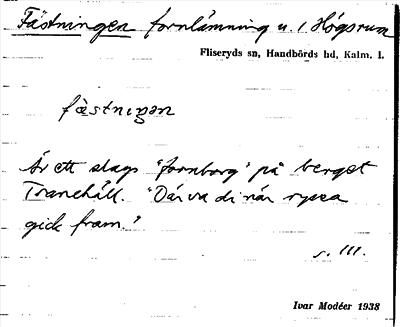 Fästningen fornlämning u. / Högsrum
Fliseryds sn, Handbörds hd, Kalm. l.
fästnigən
Är ett slags "fornborg" på berget
Tranehåll. "Där va di när ryssa
gick fram."
s. 111.
Ivar Modéer 1938